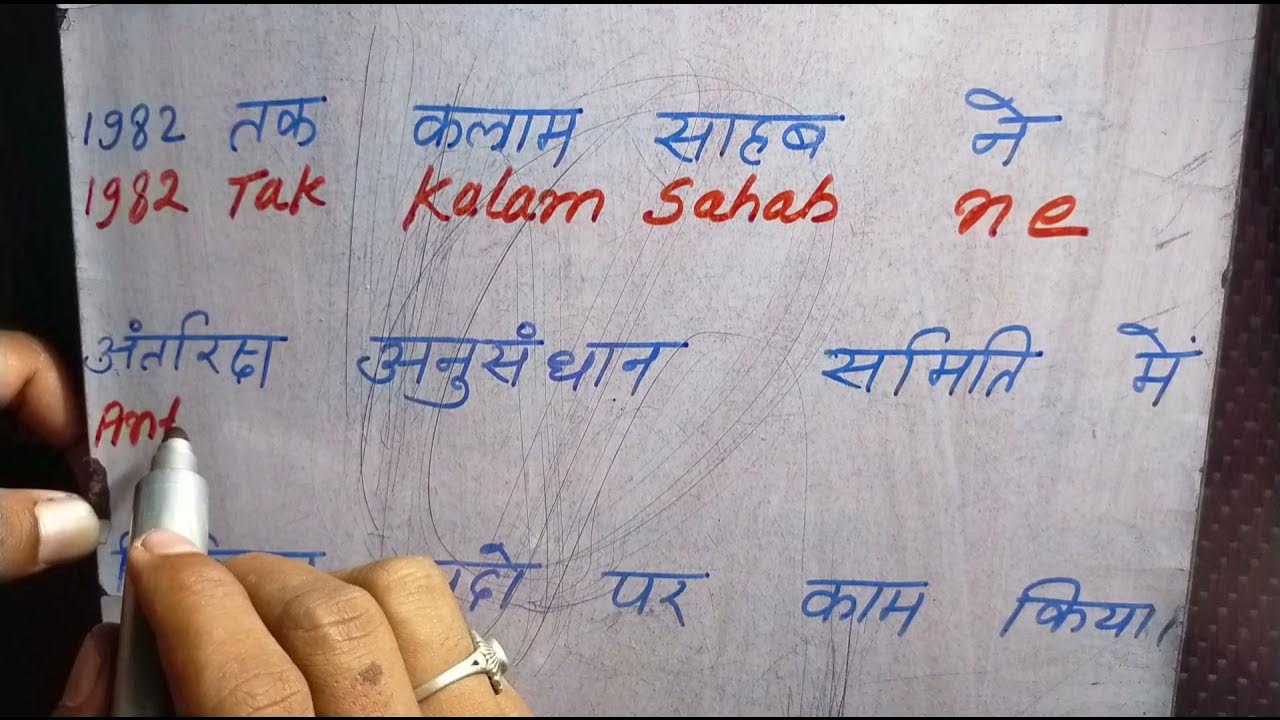 1982 तक कलाम साहब ने
1982 Tak Kalam Sahab ne
अंर्तारिक्ष अनुसंधान समिति में
Ant
पर काम किया।